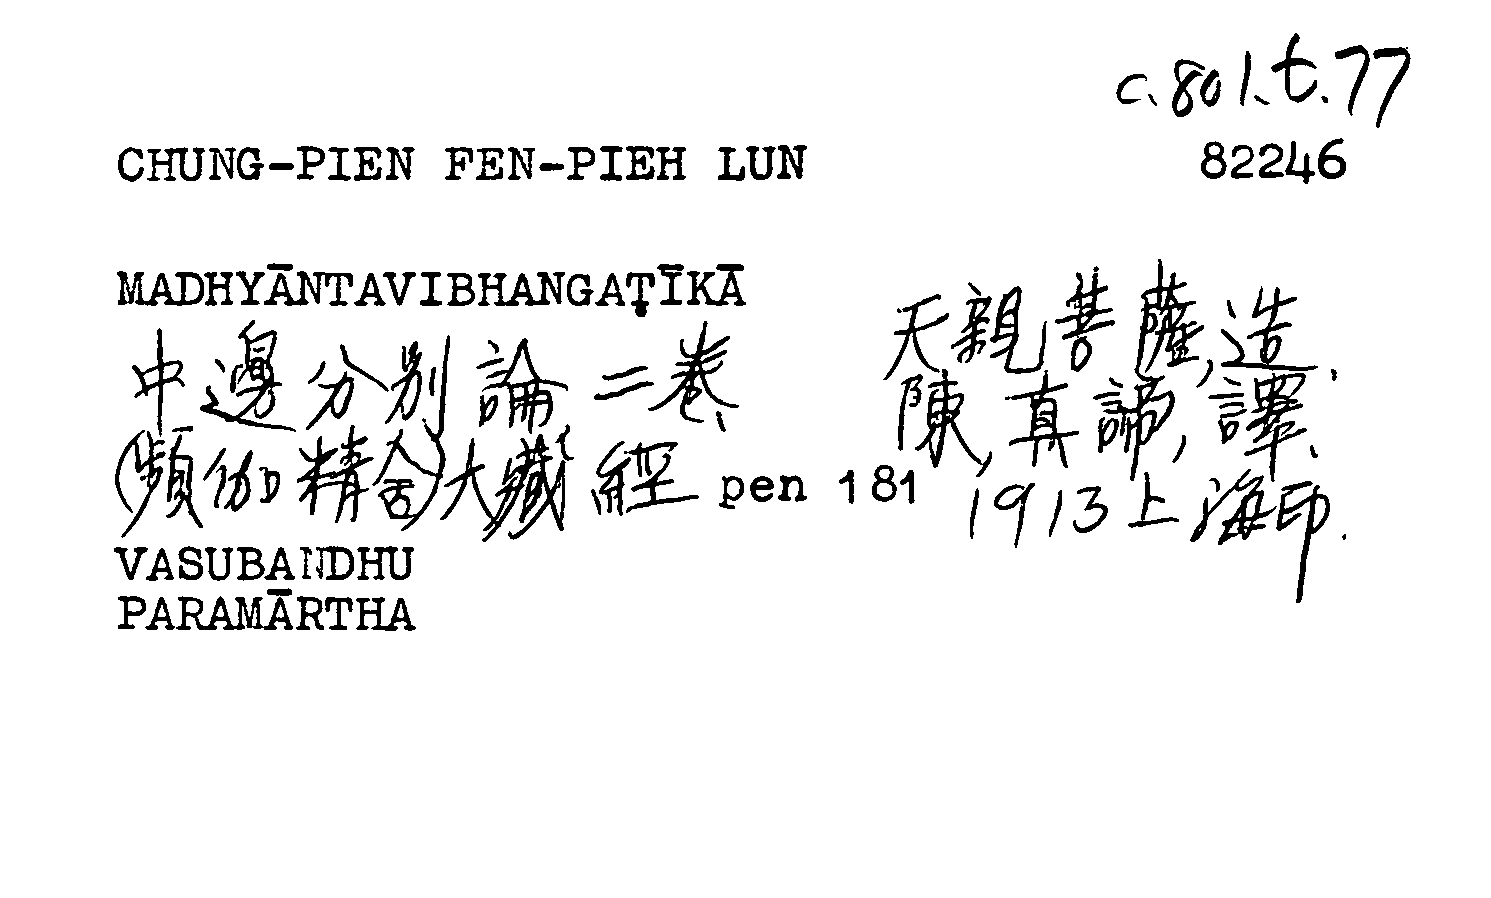 c.801.t.77
CHUNG-PIEN FEN-PIEH LUN 82246
MADHYĀNTAVIBHANGAṬĪKĀ
中邊分別論二卷、 天親菩薩,造.
(頻伽精舍)大藏經 pen 181 陳,真諦,譯.
1913上海印.
VASUBANDHU
PARAMĀRTHA